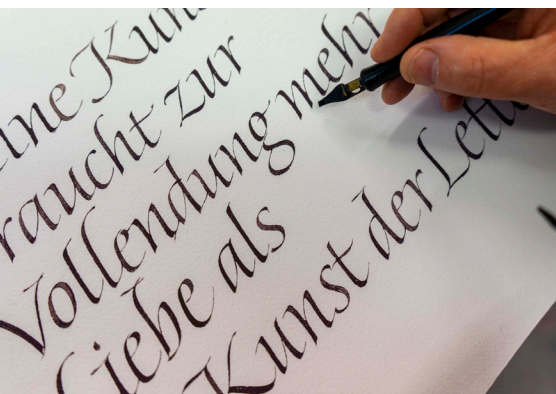 eine Kun
raucht zur
Vollendung mehr
Liebe als
Kunst der